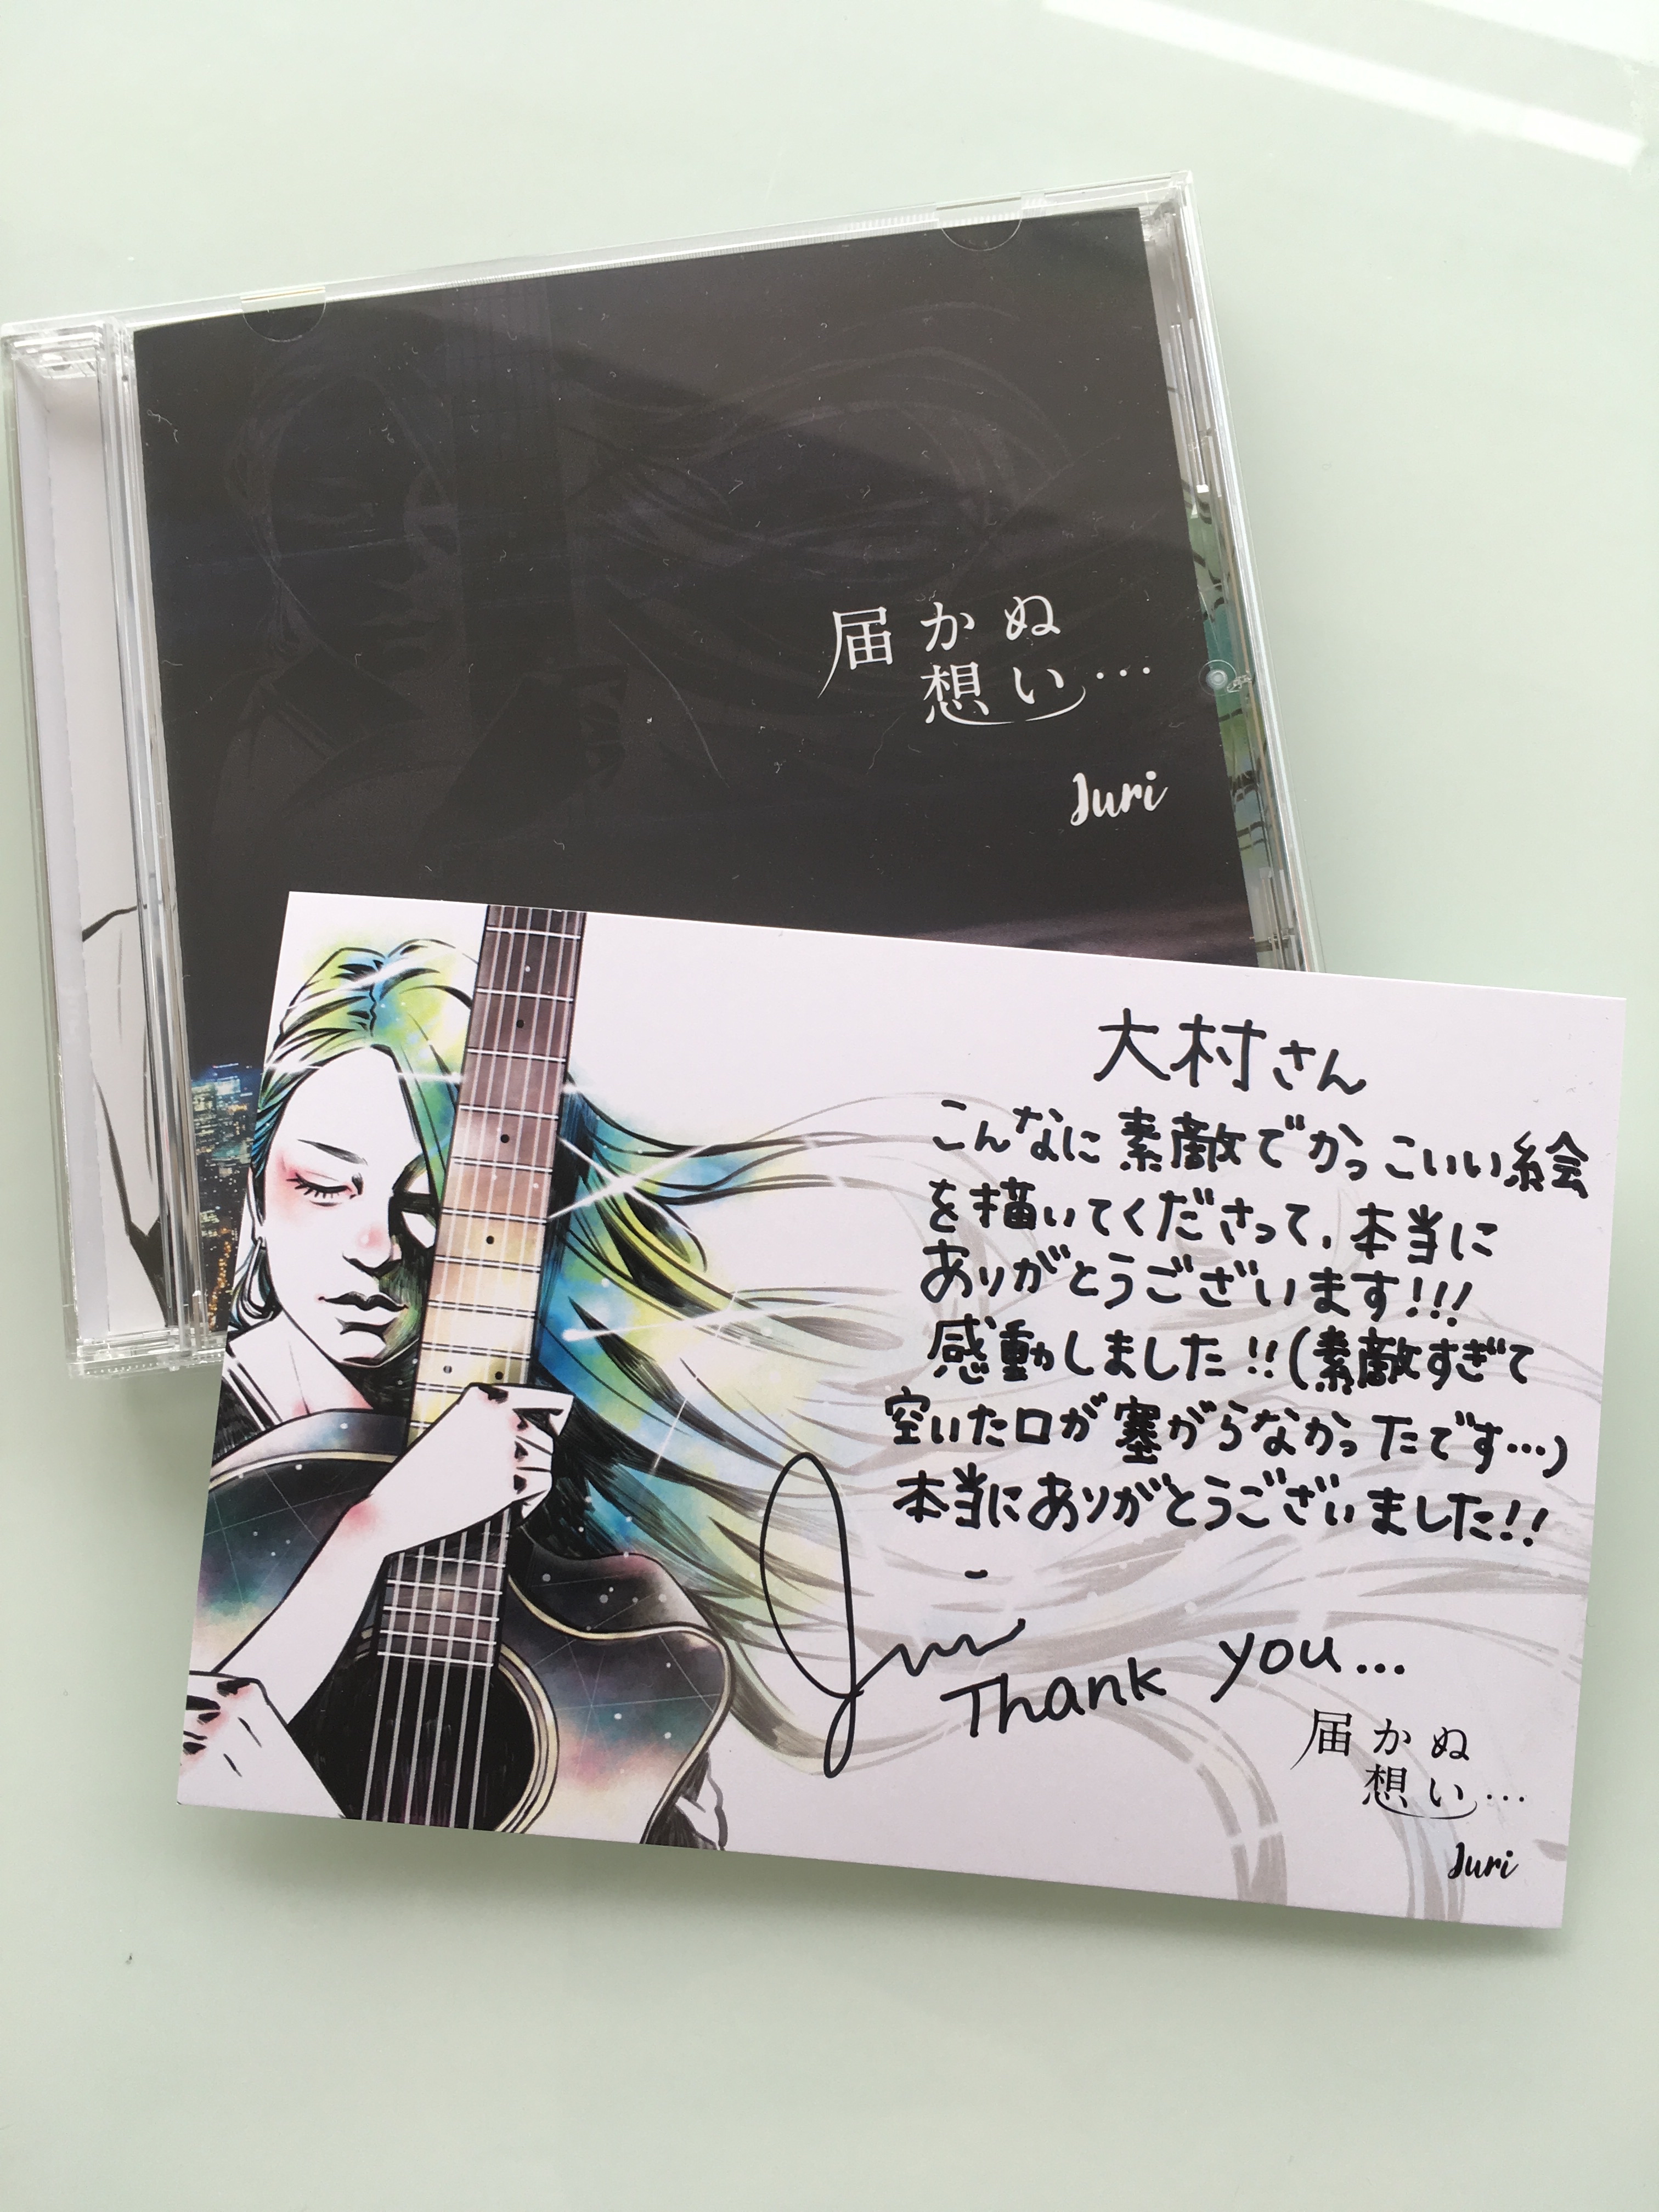 届かぬ
想い…
Juri
大村さん
こんなに素敵でかっこいい絵
を描いてくださって、本当に
ありがとうございます!!!
感動しました!!(素敵すぎて
空いた口が塞がらなかったです…)
本当にありがとうございました!!
Juri
Thank you...
届かぬ
想い…
Juri